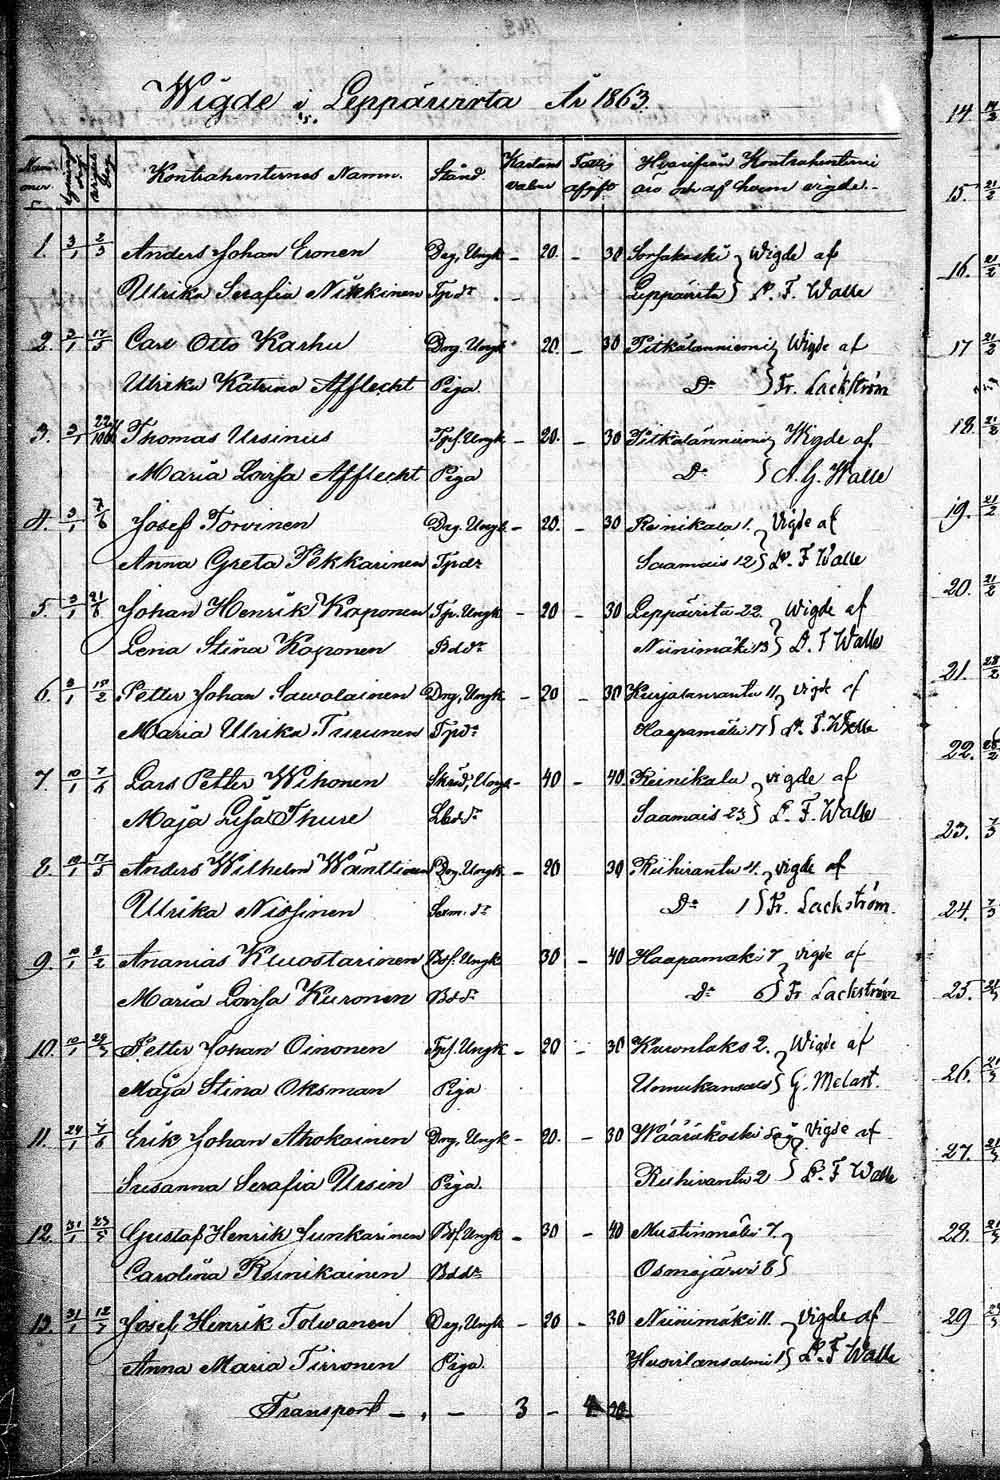 Wigde i Leppävirta År 1863.
Kontrahenternes Namn. Stånd. Hvarifrån Kontrahenterne
äro och af hvem vigde.
1. 3/1 2/3 Anders Johan Eronen Drg, Ungk - 20. - 30 Sorsakoski Wigde af
Ulrika Serafia Nikkinen Tpdr Leppävirta L. F. Walle
2. 3/1 17/5 Carl Otto Karhu Drg. Ungk 20. - 30 Pitkälänniemi Wigde af
Ulrika Katrina Afflecht Piga. Do Fr. Lackström
3. 3/1 Thomas Ursinus Tpf. Ungk - 20. - 30 Pitkälänniemi Wigde af
Maria Lovisa Afflecht Piga Do A. G. Walle
4. 3/1 7/6 Josef Torvinen Drg. Ungk - 20. - 30 Reinikala 1. Vigde af
Anna Greta Pekkarinen Tpdr Saamais 12 L. F Walle
5. 3/1 21/6 Johan Henrik Kaponen Tp. Ungk - 20 - 30 Leppävirta 22. Wigde af
Lena Stina Kaponen Bddr Niinimäki 13 L. F Walle
6. 3/1 15/2 Petter Johan Sawolainen Drg, Ungk - 20 - 30 Kurjalanranta 11 vigde af
Maria Ulrika Turunen Tpdr Haapamäki 17 L. F. Walle
7. 10/1 7/6 Lars Petter Wihonen Ungk - 40 - 40. Reinikala vigde af
Maja Lisa Thure Saamais 23 L. F. Walle
8. 10/1 17/5 Anders Wilhelm Wänttinen Drg. Ungk - 20 30 Riihiranta 4. vigde af
Ulrika Nissinen Do 1 Fr. Lackström.
9. 10/1 2/2 Ananias Kuostarinen Bdf. Ungk 30 - 40 Haapamäki 7 vigde af
Maria Lovisa Kuronen Bddr Do 6 Fr Lackström
10. 10/1 29/3 Petter Johan Oinonen Tpf. Ungk - 20 - 30 Kuronlaks 2. Wigde af
Maja Stina Oksman Piga Unnukansalo G. Melart.
11. 24/1 7/6 Erik Johan Ahokainen Drg, Ungk - 20. - 30 Wääräkoski såg Vigde af
Susanna Serafia Ursin Piga. Riihiranta 2 L. F Walle
12. 31/1 23/5 Gustaf Henrik Sunkarinen Bdf. Ungk - 30 - 40 Mustinmäki 7.
Carolina Reinikainen Bddr Osmajärvi 8
13. 31/1 12/3 Josef Henrik Tolwanen Drg, Ungk - 20 - 30 Niinimäki 11. vigde af
Anna Maria Tirronen Piga. L. F Walle
Transport - . - 3 - 4 20
14.
15. 21/2
16. 21/2
17 21/2
18. 21/2
19. 21/2
20. 21/2
21. 28/2
22. 28/2
23. 7/3
24. 7/3
25.
26. 21/3
27. 21/3
28. 21/3
29